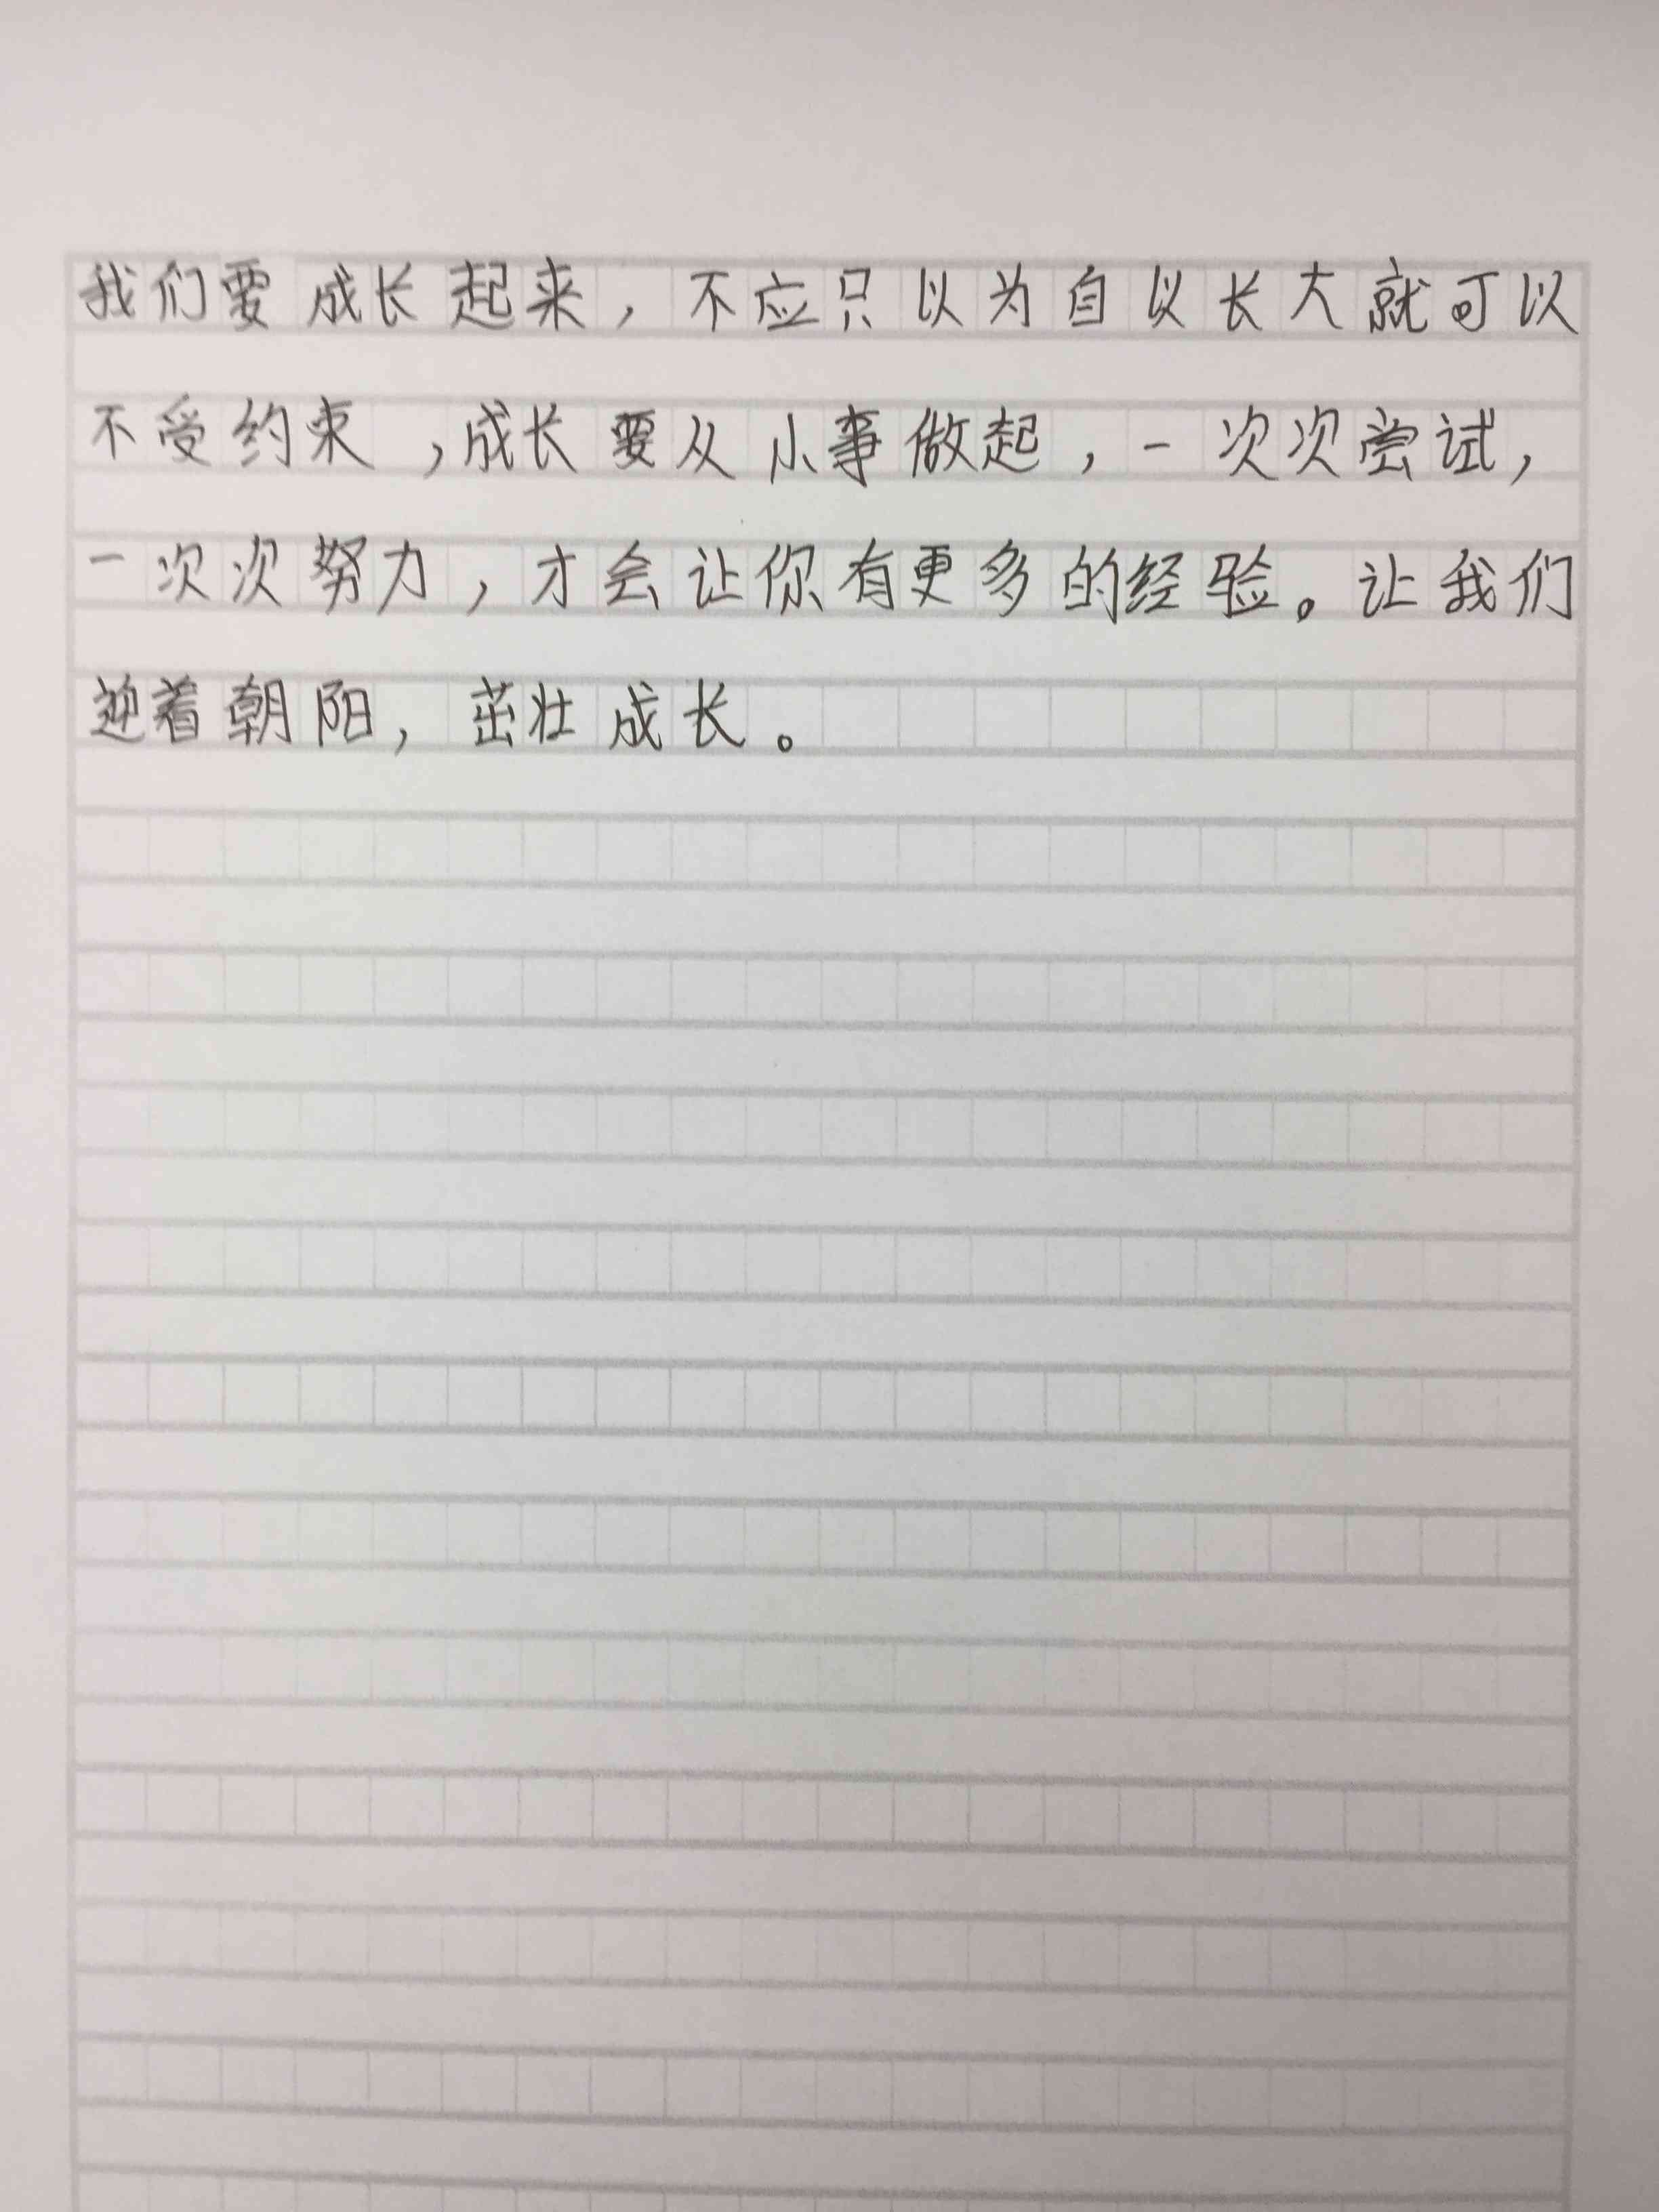 我们要成长起来，不应只以为自以长大就可以
不受约束，成长要从小事做起，一次次尝试，
一次次努力，才会让你有更多的经验。让我们
迎着朝阳，茁壮成长。